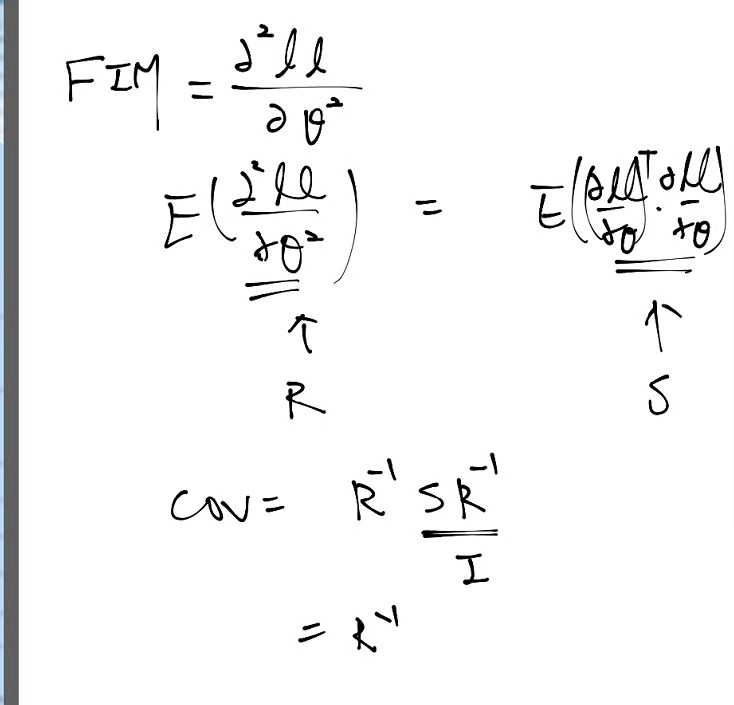 FIM = ∂²ll / ∂θ²
E(∂²ll / ∂θ²) = E((∂ll / ∂θ)ᵀ · ∂ll / ∂θ)
↑ ↑
R S
COV = R⁻¹ S R⁻¹
I
= R⁻¹